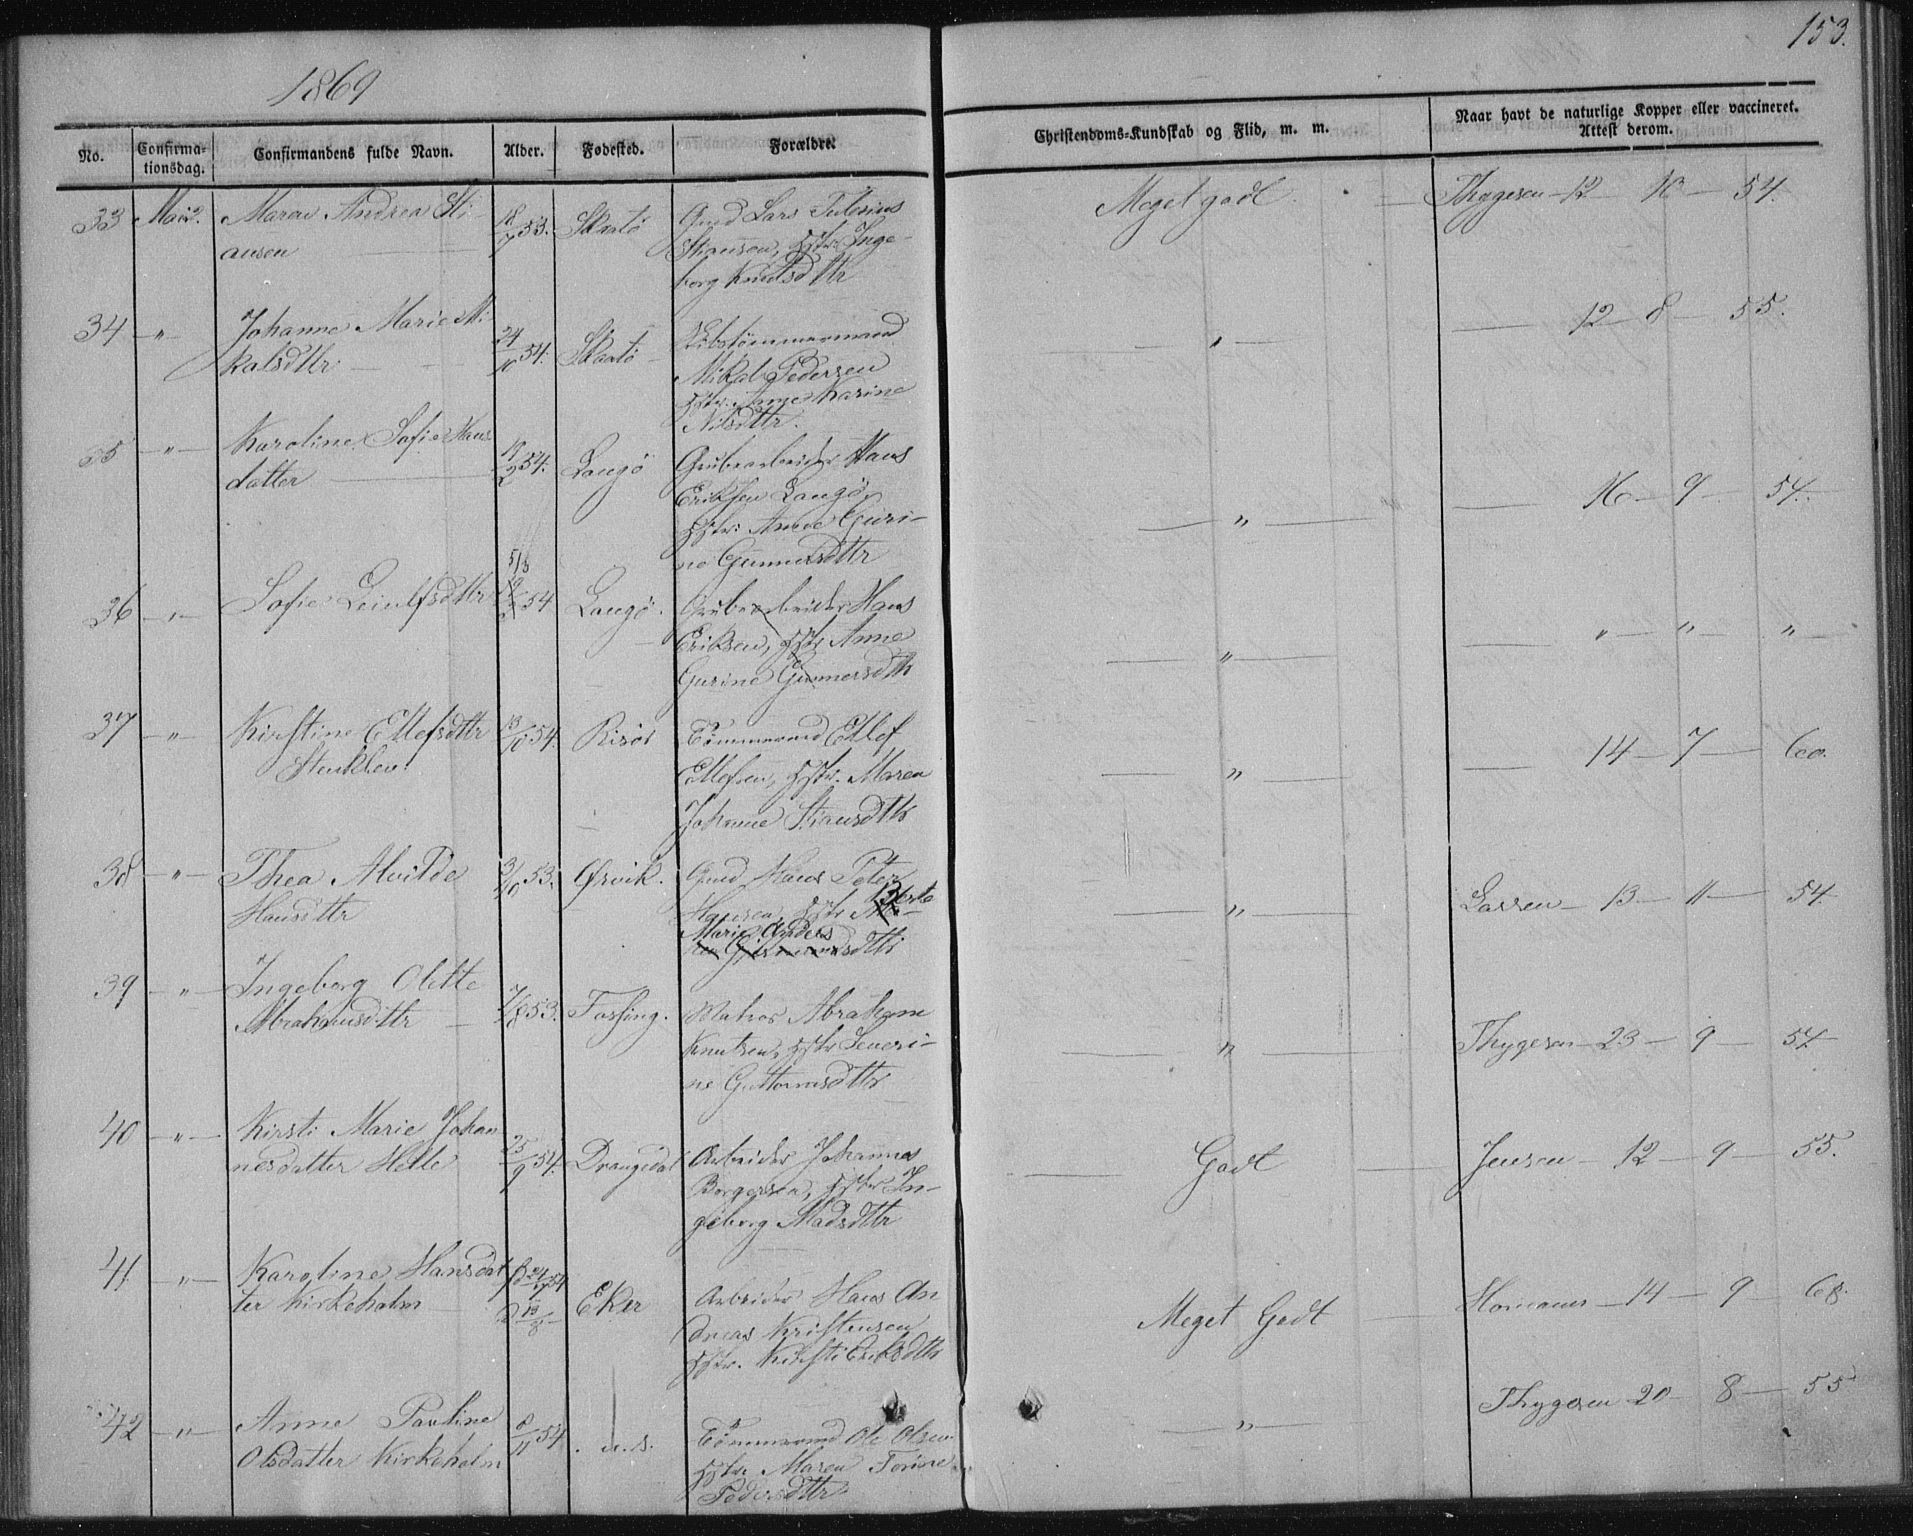 153.
1869
No.
Confirma-
tionsdag.
Confirmandens fulde Navn.
Alder.
Fødested.
Forældre.
Christendoms-Kundskab og Flid, m. m.
Naar havt de naturlige Kopper eller vaccineret.
Attest derom.
33 Mai 2. Maren Andrea Sti-
ansen
18/7 53. Skaatö
Gmd Lars Tulerius
Stiansen, Hstr. Inge-
borg Knudsdttr
Meget godt.
Thygesen 12 10 54.
34 " Johanne Marie Mi
kalsdttr
24/10 54. Skaatö
Skibstömmermand
Mikal Pedersen
Hstr. Anne Karine
Nilsdttr.
" 12 8 55.
35 " Karoline Sofie Hans
datter
19/2 54. Langö
Grubearbeider Hans
Eriksen Langö,
Hstr. Anne Guri-
ne Gunnersdttr
" 16 9 54.
36 " Sofie Leinlfsdttr
5/3
54 Langö.
Grubearbeider Hans
Eriksen, Hstr Anne
Gurine Gunnersdtr
" " " "
37 " Kirstine Ellefsdttr
Stenklev
13/10 54. Risör
Tömmermd Ellef
Ellefsen, Hstr. Maren
Johanne Stiansdtr
" 14 7 60.
38 " Thea Alvilde
Hansdttr
3/10 53. Ørvik.
Gmd Hans Peter
Hansen, Hstr Berte
Marie Anders
sdttr
" Larsen 13 11 54
39 " Ingeborg Olette
Abrahamsdttr
7/8 53. Fossing.
Matros Abraham
Knutsen, Hstr Severi-
ne Guttormsdttr
" Thygesen 23 9 54
40 " Kirsti Marie Johan
nesdatter Helle
25/9 54. Drangedal
Arbeider Johannes
Borgersen, Hstr In-
geborg Madsdttr
Godt Jensen 12 9 55.
41 " Karoline Hansdat
ter Kirkeholm
f 24/7 54
D 13/8
Eker
Arbeider Hans An
dreas Kristensen
Hstr. Kirsti Eriksdtr
Meget Godt Homann 14 9 68.
42 " Anne Pauline
Olsdatter Kirkeholm
8/11 54 . u. s.
Tömmermd Ole Olsen
Hstr. Maren Torine
Pedersdttr
" Thygesen 20 8 55